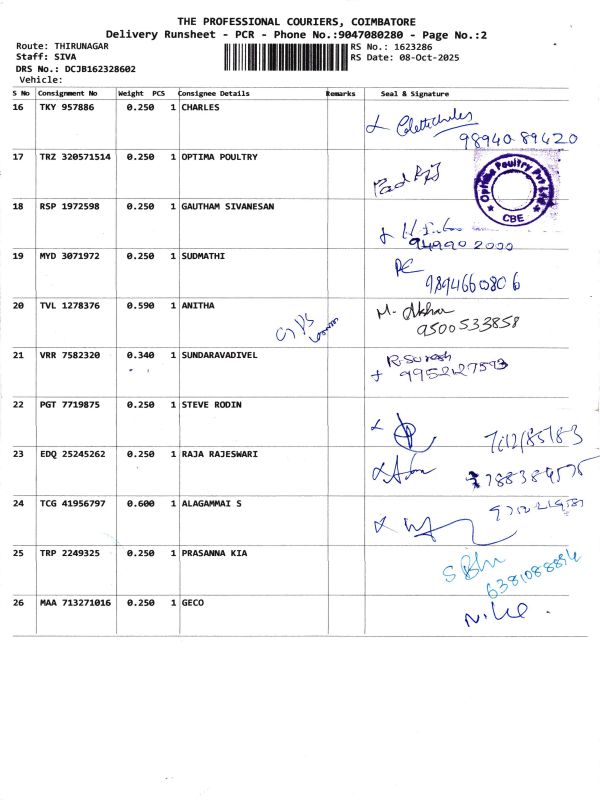 THE PROFESSIONAL COURIERS, COIMBATORE
Delivery Runsheet - PCR - Phone No.:9047080280 - Page No.:2
Route: THIRUNAGAR
RS No.: 1623286
Staff: SIVA
RS Date: 08-Oct-2025
DRS No.: DCJB162328602
Vehicle:
S No Consignment No Weight PCS Consignee Details Remarks Seal & Signature
16 TKY 957886 0.250 1 CHARLES
98940 89420
17 TRZ 320571514 0.250 1 OPTIMA POULTRY
Optima Poultry Pvt Ltd
CBE
18 RSP 1972598 0.250 1 GAUTHAM SIVANESAN
949902000
19 MYD 3071972 0.250 1 SUDMATHI
9894660806
20 TVL 1278376 0.590 1 ANITHA
M. Akshar
9500533858
21 VRR 7582320 0.340 1 SUNDARAVADIVEL
R. Suresh
22 PGT 7719875 0.250 1 STEVE RODIN
23 EDQ 25245262 0.250 1 RAJA RAJESWARI
24 TCG 41956797 0.600 1 ALAGAMMAI S
25 TRP 2249325 0.250 1 PRASANNA KIA
26 MAA 713271016 0.250 1 GECO